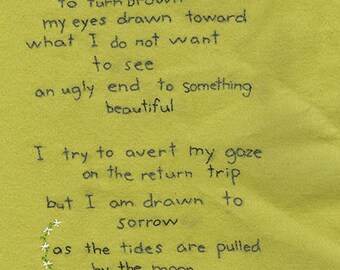 to turn brown
my eyes drawn toward
what I do not want
to see
an ugly end to something
beautiful
I try to avert my gaze
on the return trip
but I am drawn to
sorrow
as the tides are pulled
by the moon